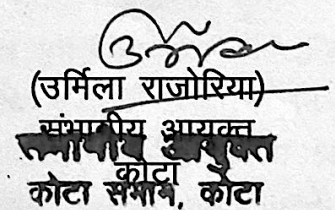 (उर्मिला राजोरिया)
संभागीय आयुक्त
संभागीय आयुक्त
कोटा
कोटा संभाग, कोटा